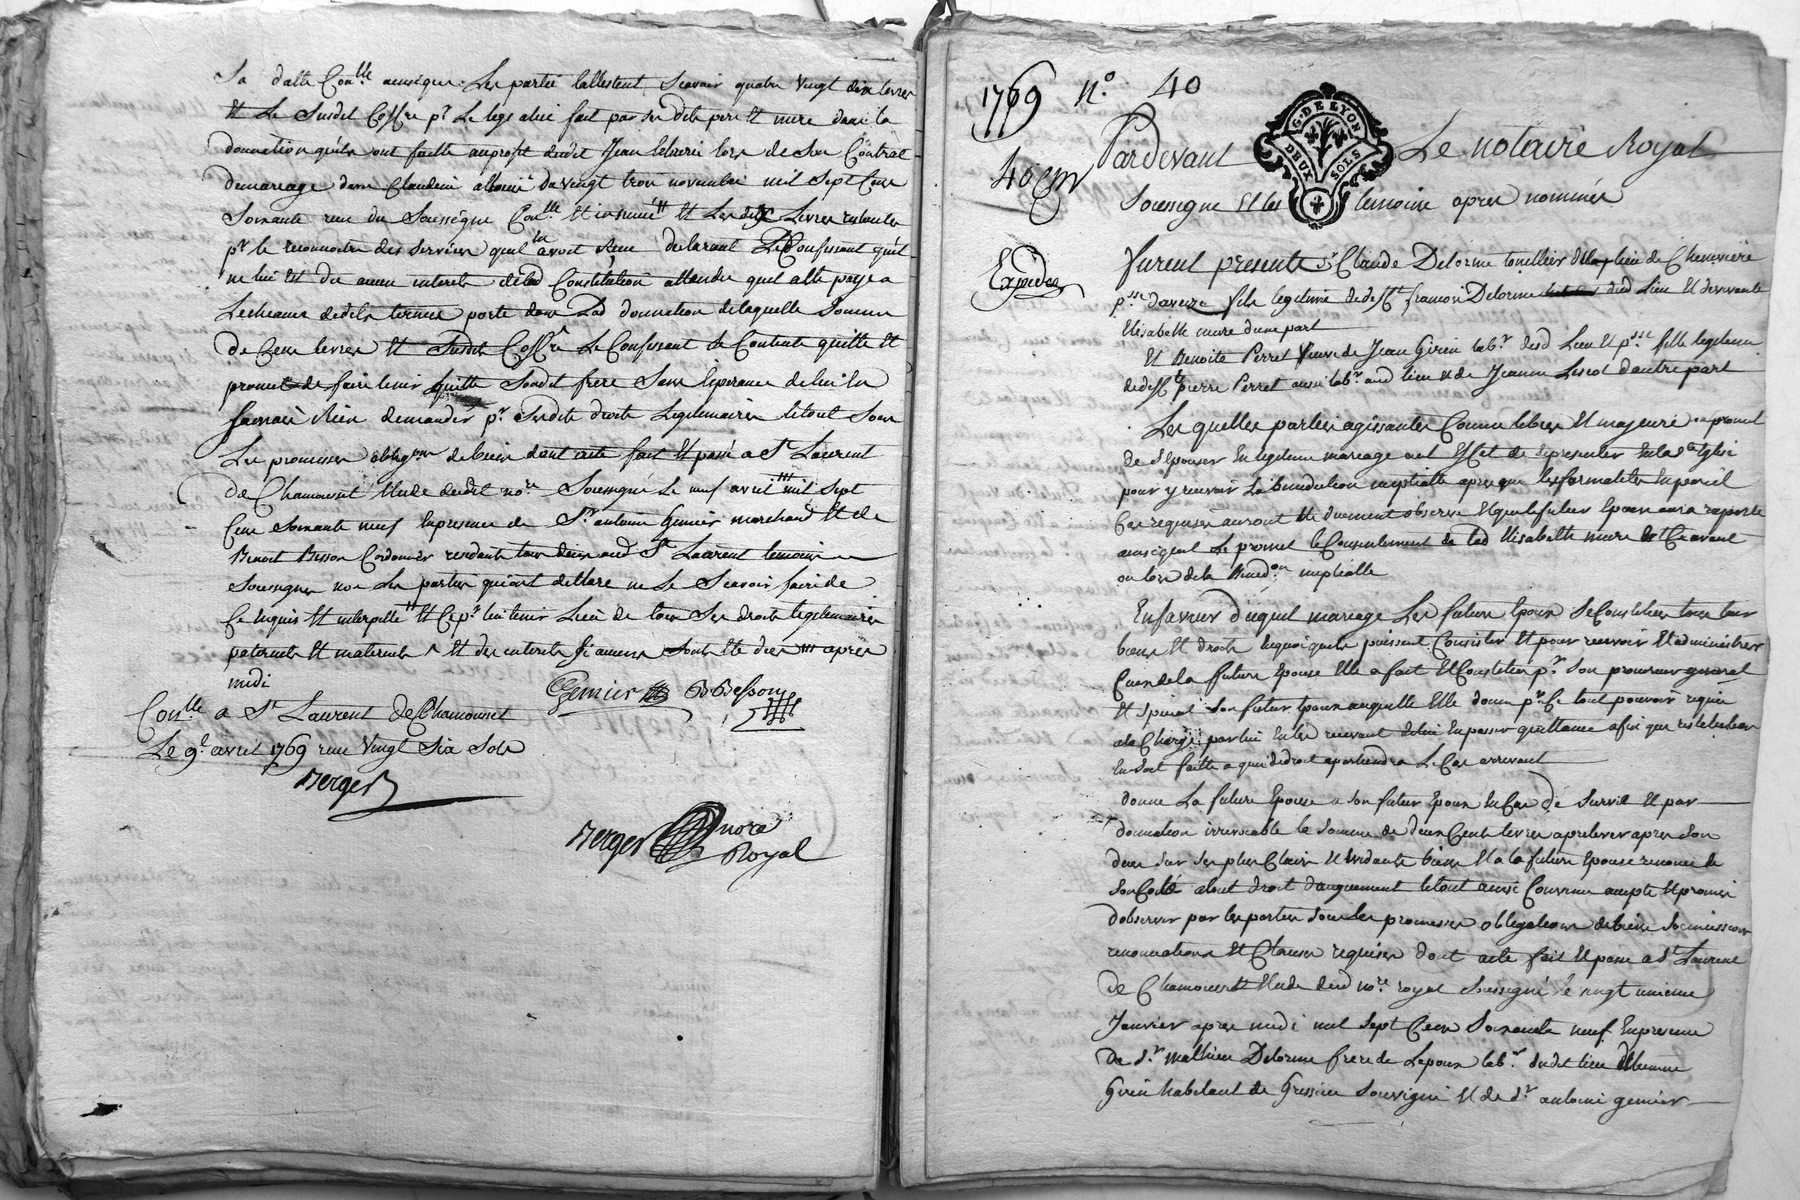 Sa datte Con.lle ainsique Les partie lattestent Scavoir quatre Vingt dix livres
Et Le Susdit Coffre p.r Le legs a luy fait par Sesdits pere Et mere dans la
donnation quils ont faitte au profit dudit Jean lors de Son Contrat
demariage avec Claudine du Vingt trois novembre mil Sept Cens
Soixante reçu du Soussigné Con.lle Et insinué Et Les dix Livres restantes
p.r le reconnoitre des Services quil luy avoit Rendu Le Confessant quil
ne lui Est du aucun interets de lad Constitution attendu quil a Ete payé a
Lecheance desdits termes porté dans Lad donnation de laquelle Somme
de Cens livres Et Susdit Coffre Le Confessant Se Contente quitte Et
promet de faire tenir quitte Sondit frere Sans Esperance de lui En
Jamais Rien demander p.r Sesdits droits Legitimaires le tout Sous
Les promesses oblig.ons de biens dont acte fait Et passé a S.t Laurent
De Chamousset Etude dudit no.re Soussigné Le neuf avril mil Sept
Cens Soixante neuf En presence de S.r antoine Gemier marchand Et de
Benoit Besson Cordonnier residants tous deux aud S.t Laurent temoins
Soussignes non Les parties qui ont declaré ne Le Scavoir faire de
Ce Enquis Et interpellé Et Ce p.r lui tenir Lieu de tous Ses droits legitimaires
paternels Et maternels Et des interets Si aucuns Sont Ete dus apres
midi
Gemier B Besson
Con.lle a S.t Laurent de Chamousset
Le 9.e avril 1769 reçu Vingt Six Sols
Berger
Berger nore
Royal
1769 N.o 40
40 Cm
G. DE LYON
DEUX SOLS
Pardevant Le notaire Royal
Soussigné Et les temoins apres nommés
Expediée
Furent presents S.r Claude Delorme de Chenevière
p.sse daveize fils legitime de deff.t françois Delorme dud Lieu Et de vivante
Elisabeth mure dune part
Et Benoite Perret Veuve de Jean Girin lab.r dud Lieu Et p.sse fille legitime
de deff.t pierre Perret aussi lab.r aud lieu Et de Jeanne Lescot dautre part
Les quelles parties agissantes Comme libres Et majeures ont promis
de Sepouser En legitime mariage a cet Effet de Se presenter En la S.te Eglise
pour y recevoir La benediction nuptialle apres que les formalités En pareil
Cas requises auront Eté duement observé Et que le futur Epoux aura raporté
ainsiquil Le promet le Consentement de lad Elisabeth mure Et Ce avant
ou lors de la Bened.on nuptialle
En faveur duquel mariage Les futurs Epoux Se Constitués tous leur
biens Et droits En quoi quils puissent Consister Et pour recevoir Et administrer
Ceux de la future Epouse Elle a fait Et Constitué p.r Son procureur general
Et Special Son futur Epoux auquelle Elle donne p.r Ce tout pouvoir requis
a la Charge par lui En les recevant de lui En passer quittance afin que restitution
En Soit faitte a qui de droit apartiendra Le Cas arrivant
donne La future Epouse a Son futur Epoux En Cas de Survie Et par
donnation irrevocable la Somme de deux Cents livres a prelever apres Son
deces Sur Ses plus Clairs Et Evidants biens Et a la future Epouse renoncé de
Son Coté a tout droit daugment le tout ainsi Convenu accepté Et promis
dobserver par les parties Sous les promesses obligations de biens Soumissions
renonciations Et Clauses requises dont acte fait Et passé a S.t Laurent
de Chamousset Etude dud no.re royal Soussigné Le Vingt unieme
Janvier apres midi mil Sept Cens Soixante neuf En presence
de S.r mathieu Delorme frere de Lepoux lab.r dudit lieu
Girin habitant de Gressieu Souvigni Et de S.r antoine gemier